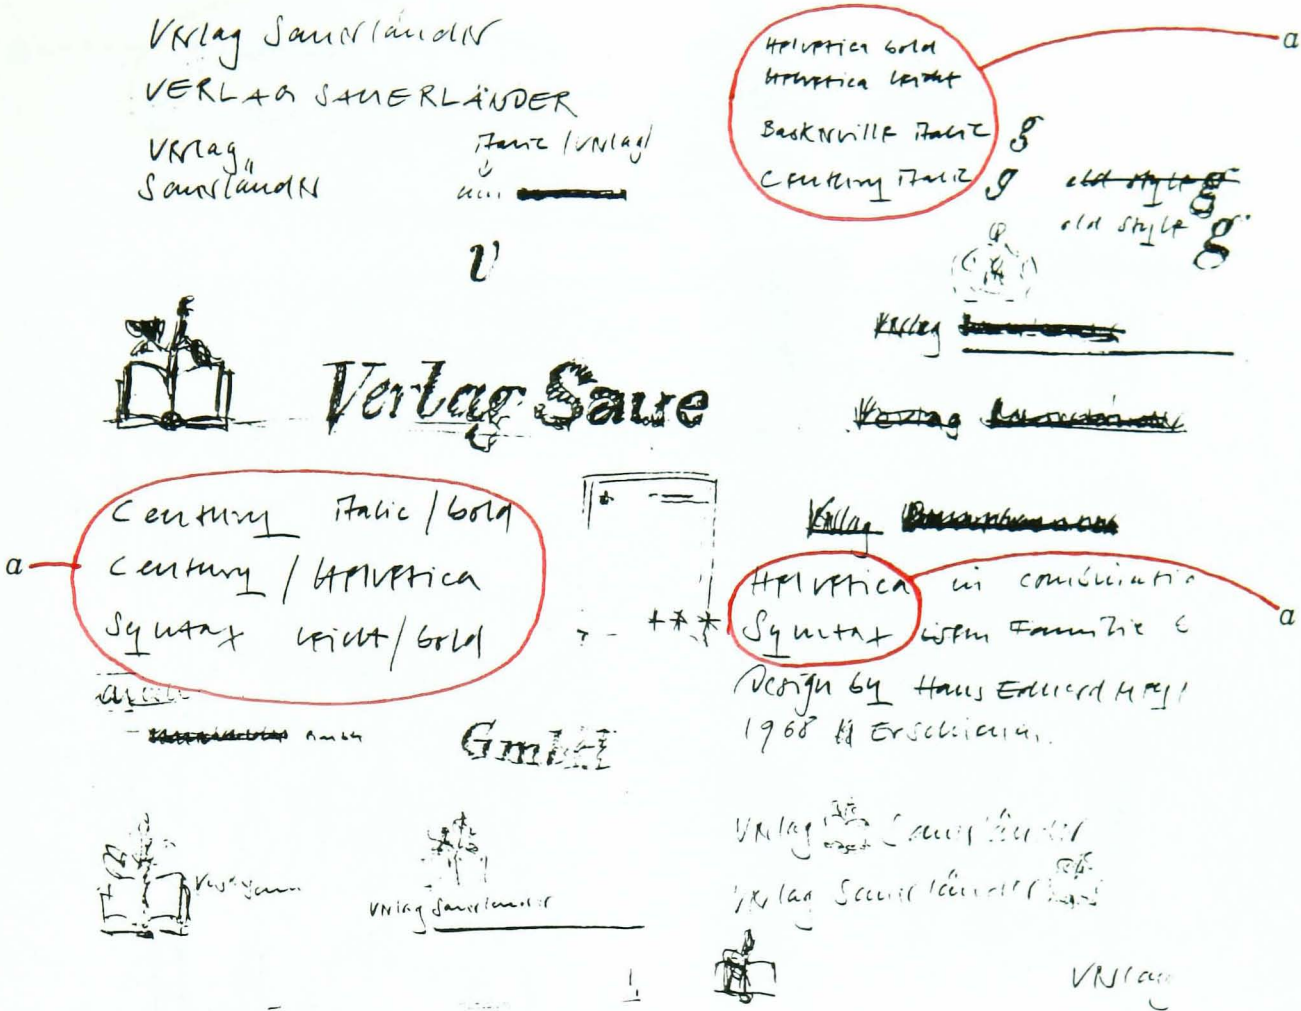 Verlag Sauerländer
VERLAG SAUERLÄNDER
Verlag
Sauerländer
italic (Verlag)
v
Helvetica bold
Helvetica leicht
Baskerville italic g
Century italic g
old style g
old style g
a
Verlag
Verlag Saue
Verlag
Verlag
a
Century italic / bold
Century / Helvetica
Syntax leicht / bold
Helvetica in combinatio
Syntax
Design by Hans Eduard
1968 Erschienen.
a
GmbH
GmbH
Verlag Sauerländer
Verlag Sauerländer
Verlag Sauerländer
Verlag